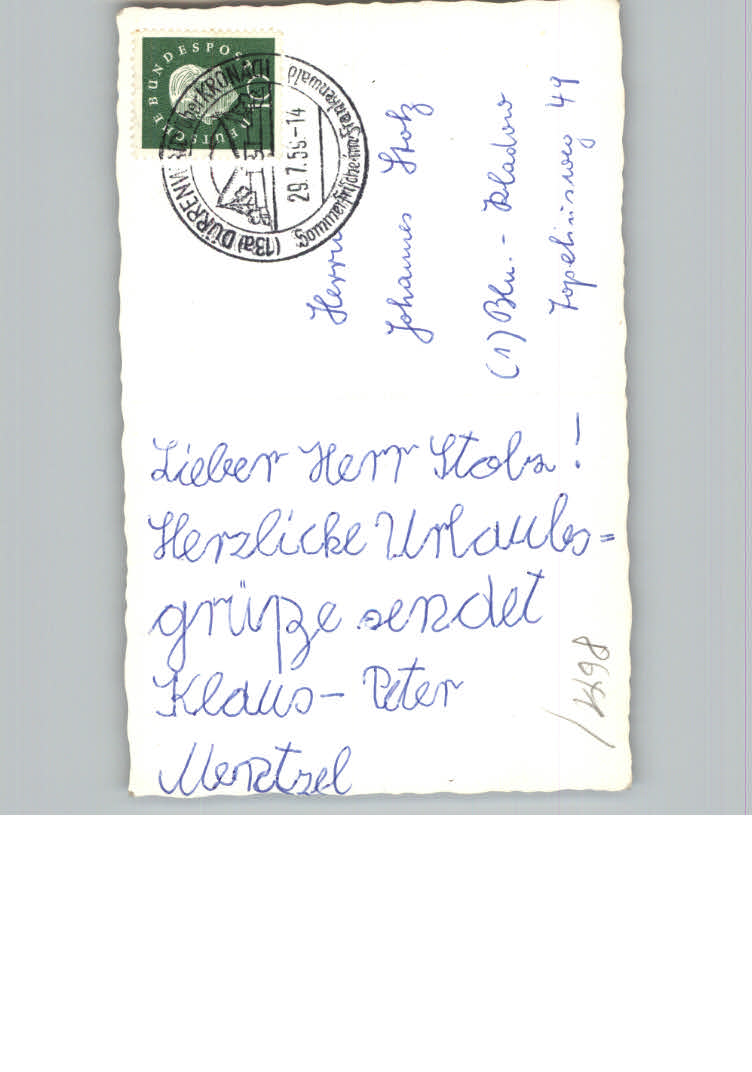 DEUTSCHE BUNDESPOST
10
(13a) DÜRRENWAID KRONACH
Sommerfrische im Frankenwald
29.7.59.-14
Herrn
Johannes Stolz
(1) Bln. - Kladow
Topeliusweg 49
Lieber Herr Stolz!
Herzlicke Urlaubs=
grüße sendet
Klaus- Peter
Mentzel